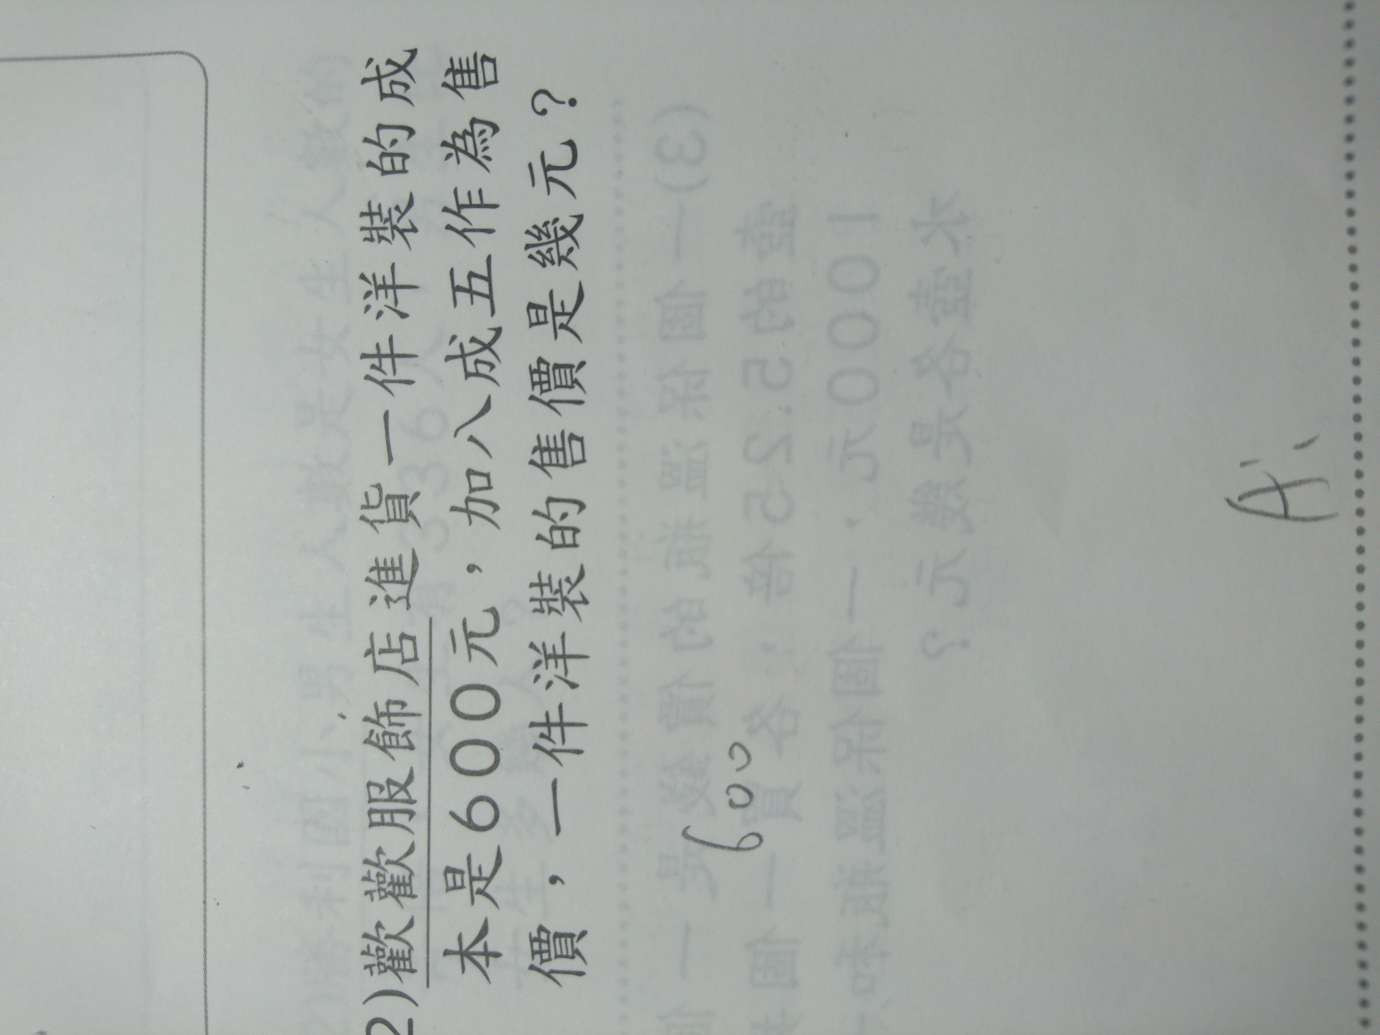 2)歡歡服飾店進貨一件洋裝的成
本是600元，加八成五作為售
價，一件洋裝的售價是幾元？
600
A：